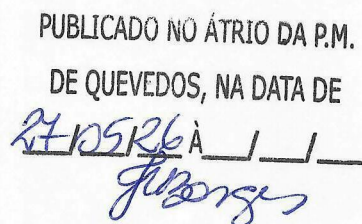 PUBLICADO NO ÁTRIO DA P.M.
DE QUEVEDOS, NA DATA DE
27/05/26 À __/__/__